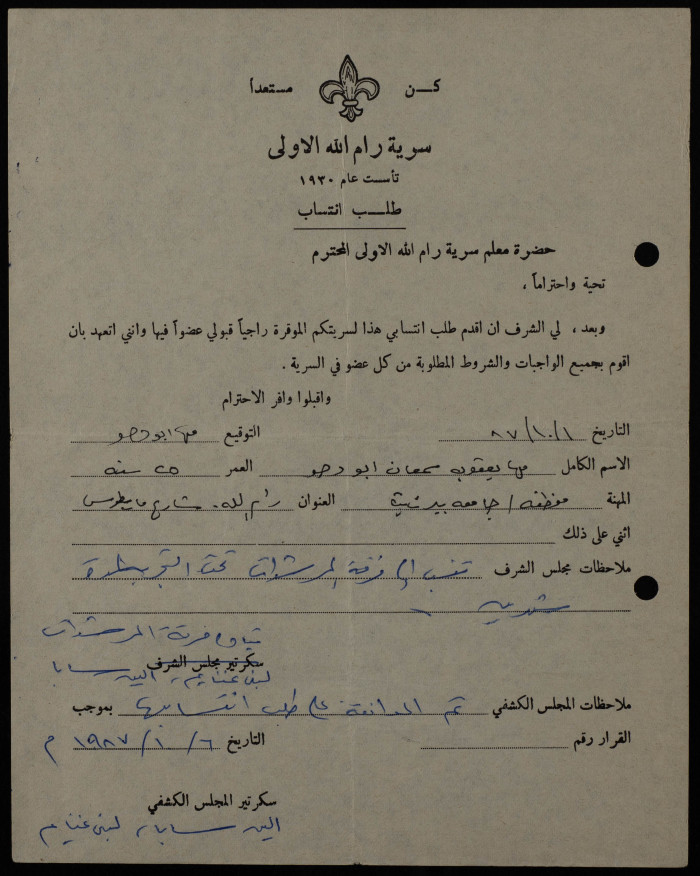 كن مستعداً
سرية رام الله الاولى
تأسست عام ١٩٣٠
طلب انتساب
حضرة معلم سرية رام الله الاولى المحترم
تحية واحتراماً ،
وبعد ، لي الشرف ان اقدم طلب انتسابي هذا لسريتكم الموقرة راجياً قبولي عضواً فيها وانني اتعهد بان
اقوم بجميع الواجبات والشروط المطلوبة من كل عضو في السرية .
واقبلوا وافر الاحترام
التاريخ ٨٧/١٠/١ التوقيع مها ابو دحو
الاسم الكامل مها يعقوب سمعان ابو دحو العمر ٢٥ سنه
المهنة موظفه / جامعه بيرزيت العنوان رام الله - شارع مار بطرس
اثني على ذلك
ملاحظات مجلس الشرف تنسب إلى فرقة المرشدات تحت التجربة لمدة
شهرين
قيادة فرقة المرشدات
سكرتير مجلس الشرف
لبنى غنايم ، الين سابا
ملاحظات المجلس الكشفي تم الموافقة على طلب انتسابها بموجب
القرار رقم التاريخ ١٩٨٧/١٠/٦ م
سكرتير المجلس الكشفي
الين سابا ، لبنى غنايم